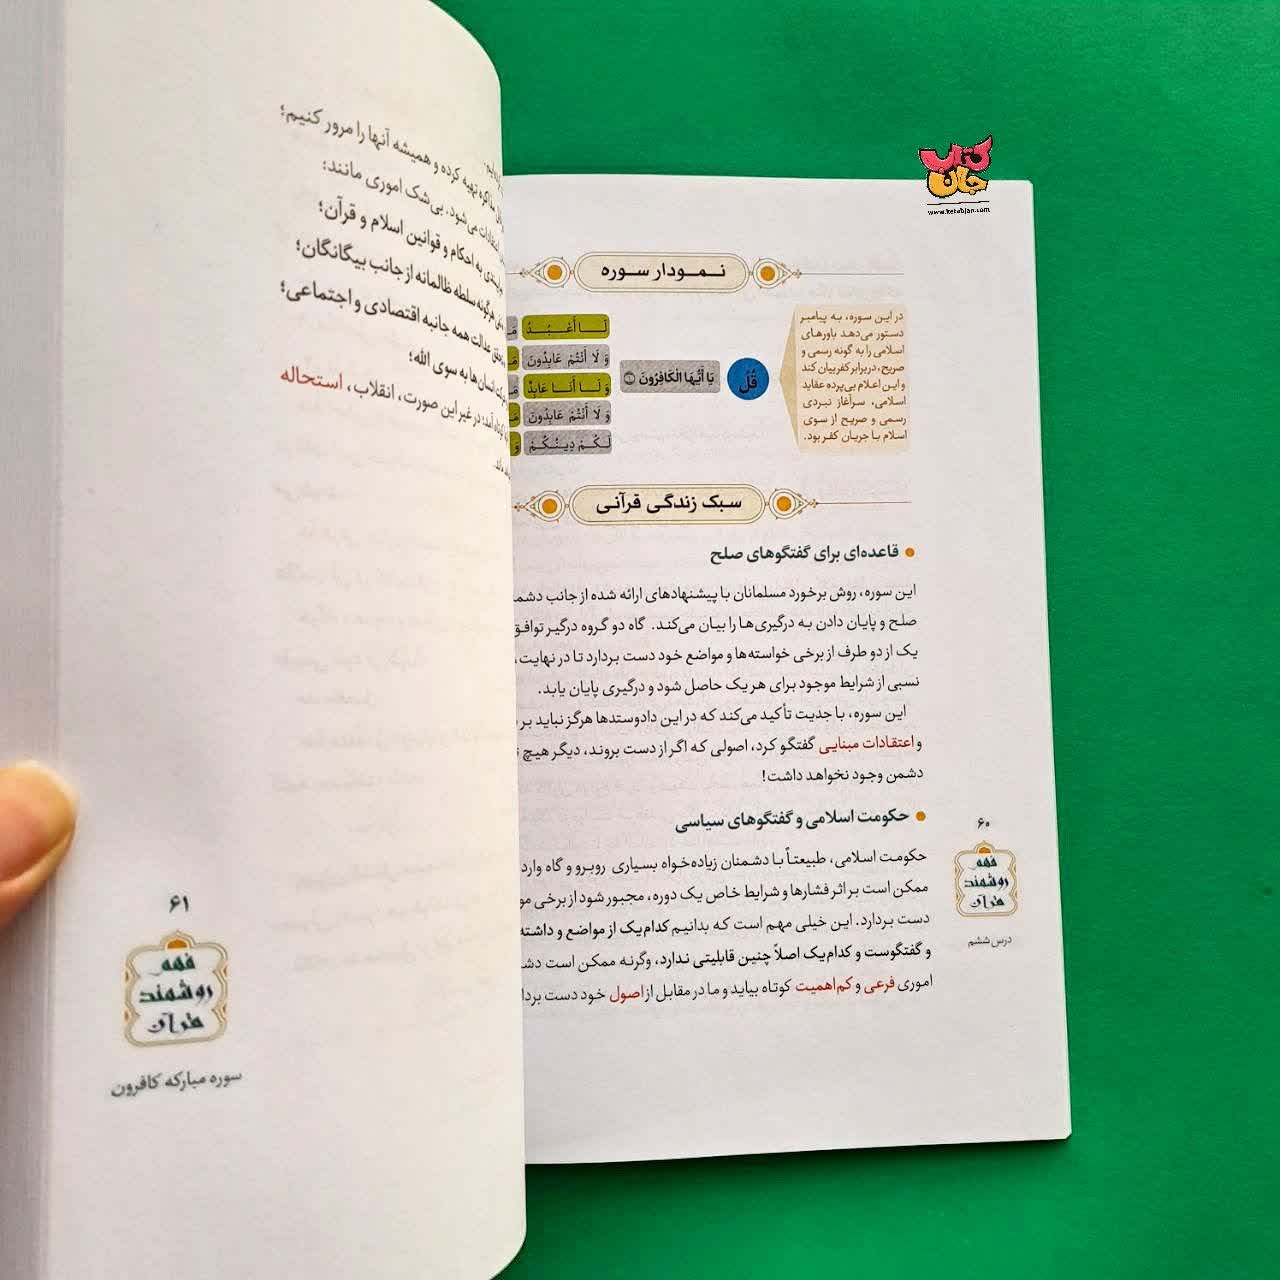 کتاب جان
www.ketabjan.com
نـمـودار سـوره
در این سوره، به پیامبر
دستور می‌دهد باورهای
اسلامی را به گونه رسمی و
صریح، در برابر کفر بیان کند
و این اعلام بی‌پرده عقاید
اسلامی، سرآغاز نبردی
رسمی و صریح از سوی
اسلام با جریان کفر بود.
قُلْ
يَا أَيُّهَا الْكَافِرُونَ ①
لَــا أَعْــبُــدُ
وَ لَا أَنتُمْ عَابِدُونَ
وَ لَــا أَنَا عَابِدٌ
وَ لَا أَنتُمْ عَابِدُونَ
لَـكُـمْ دِيـنُـكُـمْ
سبک زندگی قرآنی
• قاعده‌ای برای گفتگوهای صلح
این سوره، روش برخورد مسلمانان با پیشنهادهای ارائه شده از جانب
صلح و پایان دادن به درگیری‌ها را بیان می‌کند. گاه دو گروه درگیر
یک از دو طرف از برخی خواسته‌ها و مواضع خود دست بردارد تا در نهایت،
نسبی از شرایط موجود برای هر یک حاصل شود و درگیری پایان یابد.
این سوره، با جدیت تأکید می‌کند که در این دادوستدها هرگز نباید بر
و اعتقادات مبنایی گفتگو کرد، اصولی که اگر از دست بروند، دیگر هیچ
دشمن وجود نخواهد داشت!
• حکومت اسلامی و گفتگوهای سیاسی
حکومت اسلامی، طبیعتاً با دشمنان زیاده‌خواه بسیاری روبرو و گاه وارد
ممکن است بر اثر فشارها و شرایط خاص یک دوره، مجبور شود از برخی
دست بردارد. این خیلی مهم است که بدانیم کدام‌یک از مواضع و
و گفتگوست و کدام‌یک اصلاً چنین قابلیتی ندارد، وگرنه ممکن است
اموری فرعی و کم‌اهمیت کوتاه بیاید و ما در مقابل از اصول خود دست
۶۰
فهم
روشمند
قرآن
درس ششم
تهیه کرده و همیشه آنها را مرور کنیم؛
می‌شود. بی‌شک اموری مانند:
به احکام و قوانین اسلام و قرآن؛
هرگونه سلطه ظالمانه از جانب بیگانگان؛
عدالت همه جانبه اقتصادی و اجتماعی؛
انسان‌ها به سوی الله؛
در غیر این صورت، انقلاب، استحاله
۶۱
فهم
روشمند
قرآن
سوره مبارکه کافرون